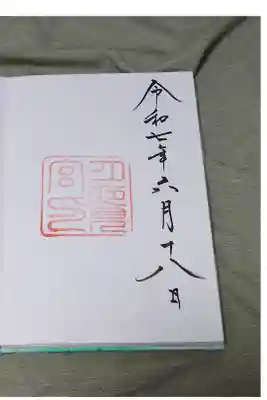 令和七年六月十八日